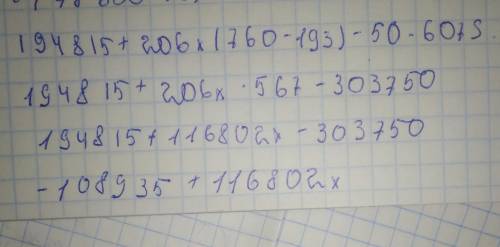 194815 + 206x (760 - 193) - 50 - 6075.
194815 + 206x · 567 - 303750
194815 + 116802x - 303750
- 108935 + 116802x